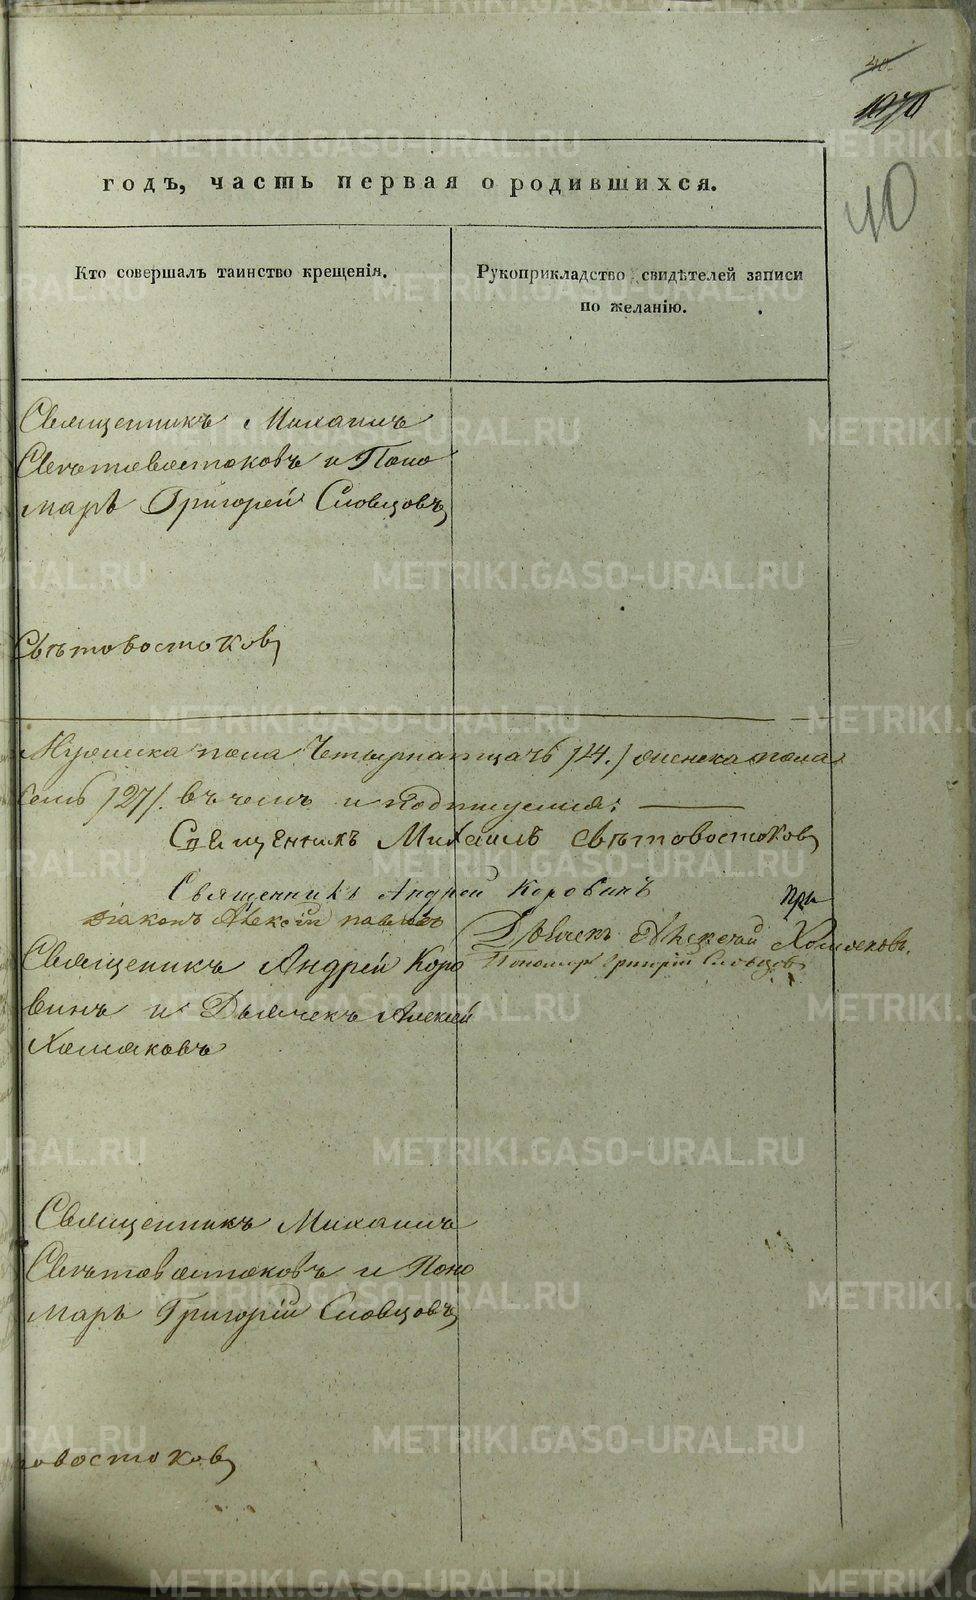 40
годъ, часть первая о родившихся.
40
Кто совершалъ таинство крещенія.
Рукоприкладство свидѣтелей записи
по желанію.
Священникъ Михаилъ
Свѣтовостоковъ и Поно
марь Григорей Словцовъ
Свѣтовостоковъ
Мужеска пола Четырнатцать /14./ женска пола
семь /27/. въ чемъ и подпишемся:
Священникъ Михаилъ Свѣтовостоковъ
Священникъ Андрей Коровинъ
Діаконъ Алексій
Дьячекъ Алексей Хомяковъ.
Пономарь Григорій Словцовъ
Священикъ Андрей Коро
винъ и Дьячекъ Алексей
Хомяковъ
Священникъ Михаилъ
Свѣтовостоковъ и Поно
марь Григорій Словцовъ
овостоковъ
METRIKI.GASO-URAL.RU